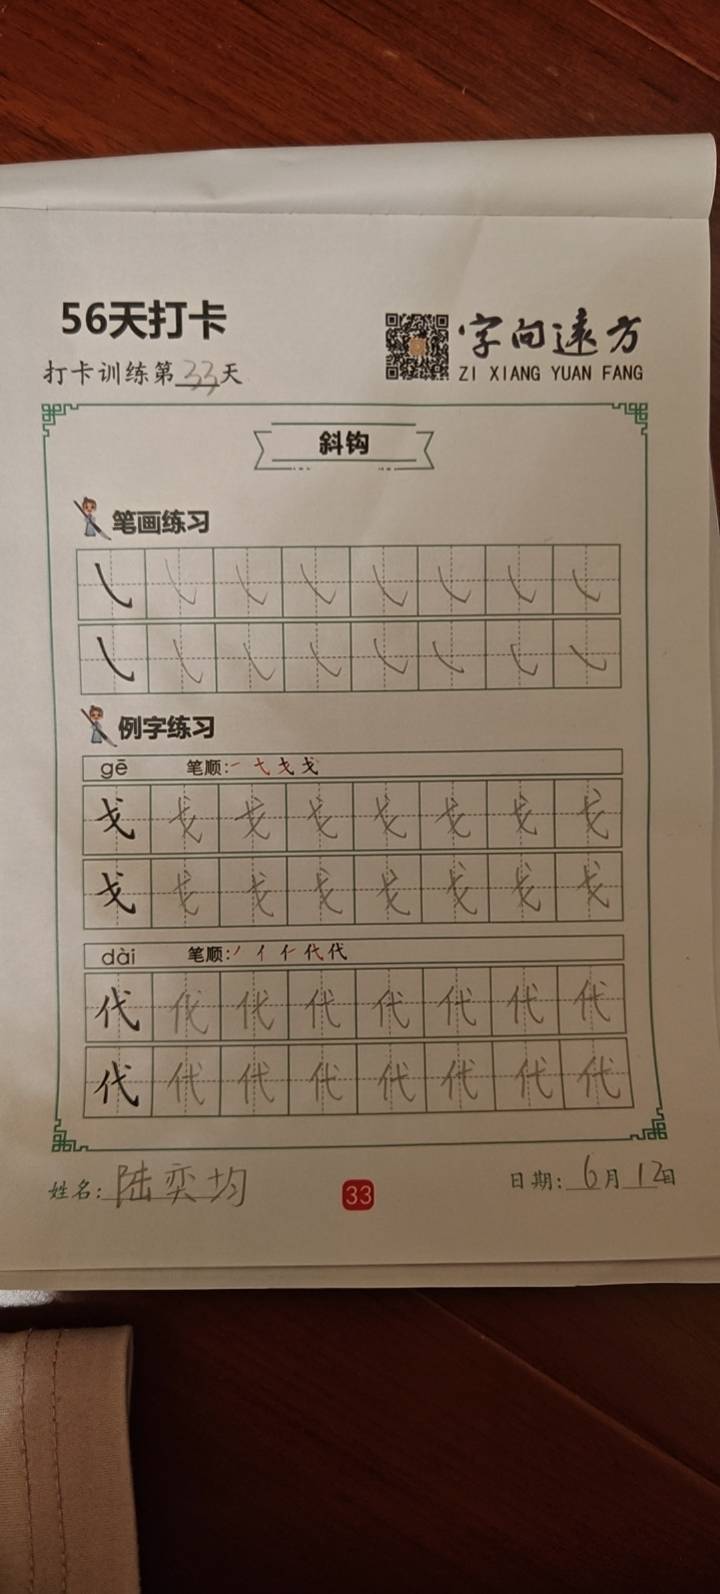 56天打卡
字向遠方
打卡训练第33天
ZI XIANG YUAN FANG
斜钩
笔画练习
㇂ ㇂ ㇂ ㇂ ㇂ ㇂ ㇂ ㇂
㇂ ㇂ ㇂ ㇂ ㇂ ㇂ ㇂ ㇂
例字练习
gē 笔顺:㇀ 弋 戈 戈
戈 戈 戈 戈 戈 戈 戈 戈
戈 戈 戈 戈 戈 戈 戈 戈
dài 笔顺:丿 亻 仁 代 代
代 代 代 代 代 代 代 代
代 代 代 代 代 代 代 代
姓名:陆奕均 33 日期:6月12日